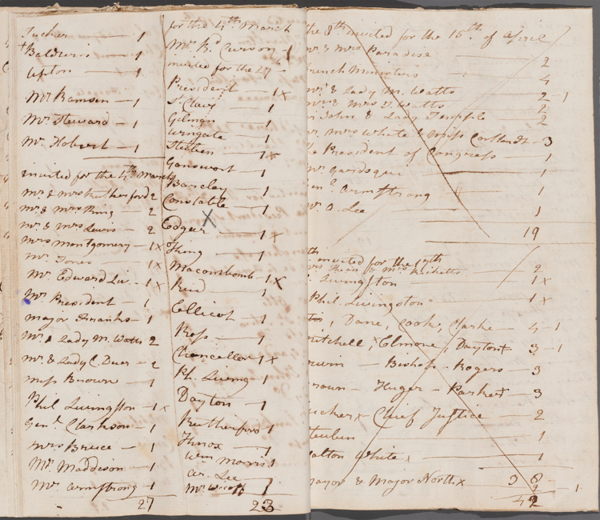 Tucker — 1
Baldwin — 1
Upton — 1
Mr. Ramsen — 1
Mr. Steward — 1
Mr. Hobert — 1
invited for the 4th March
Mr. & Mrs Rutherford 2
Mr. & Mrs King — 2
Mr. & Mrs Lewis — 2
Mrs Montgomery — 1x
Mr. Jones — 1x
Mr. Edward Liv. — 1x
Mr. President — 1
Major Franks — 1
Mr. & Lady M. Watts 2
Mr. & Lady C. Duer — 2
Miss Brown — 1
Phil Livingston — 1x
Genl. Clarkson — 1
Mrs Bruce — 1
Mr. Maddison — 1
Mr. Armstrong — 1
27
for the 4th March
Mr. Rd. Curson 1
invited for the 27
President — 1x
St. Clair 1
Gilman 1
Wingate 1
Steuben 1x
Gansevort 1
Barclay 1
Constable 1
Edgar 1x
King — 1
Macoombomb 1x
Read 1
Ellicot 1
Ross 1
Chancellor 1x
Ph. Living 1
Dayton — 1
Rutherford 1
Knox 1
Wm Morris 1
Ar. Lee 1
23
the 8th invited for the 15th of April
Mr. & Mrs Paradise — 2
French Minister 4
Mr. & Lady M. Watts — 2 - 1
2
John & Lady Temple — 2
Mrs White & Miss Cortlandt — 3
The President of Congress — 1
Mr. Gardoqui — 1
Armstrong — 1
Mr. A. Lee — 1
19
invited for the
2
Livingston — 1x
Phil Livingston — 1x
Dane, Cook, Clarke — 4 - 1
Mitchell, x Elmore, Dayton + 3 - 1
Bishop - Rogers 3
Brown - Huger - Parker + 3
Tucker x Chief Justice — 2
Steuben 1
Walton White x 1
Mayor & Major North x 3 8
42